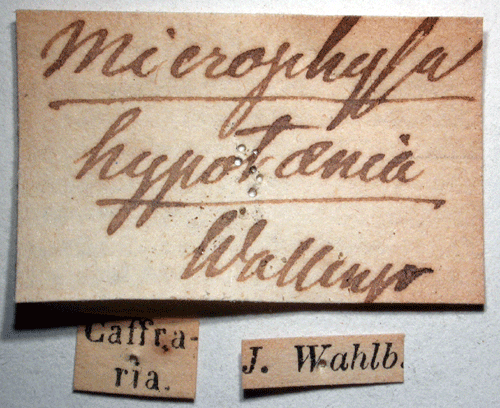 Microphysa
hypotænia
Wallengr
Caffra-
ria.
J. Wahlb.